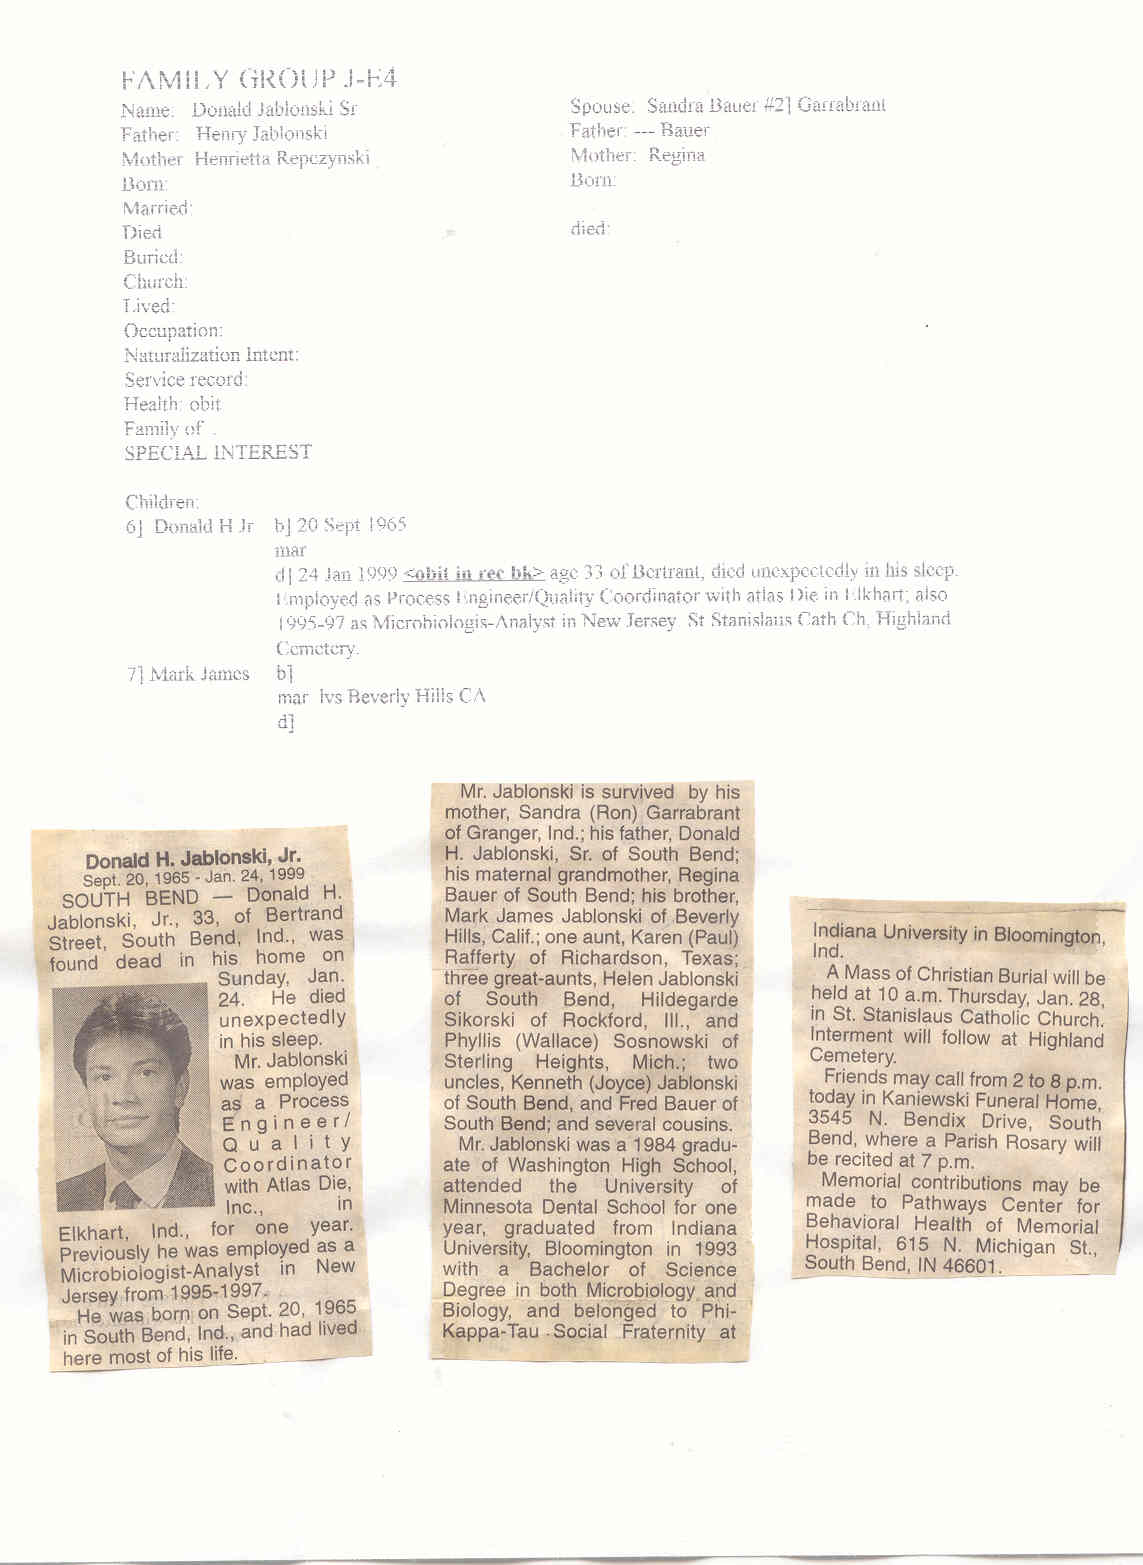 FAMILY GROUP J-E4
Name: Donald Jablonski Sr
Father: Henry Jablonski
Mother Henrietta Repczynski
Born:
Married:
Died
Buried:
Church:
Lived:
Occupation:
Naturalization Intent:
Service record:
Health: obit
Family of .
SPECIAL INTEREST
Spouse: Sandra Bauer #2] Garrabrant
Father: --- Bauer
Mother: Regina
Born:
died:
Children:
6] Donald H Jr b] 20 Sept 1965
mar
d] 24 Jan 1999 <obit in rec bk> age 33 of Bertrant, died unexpectedly in his sleep.
Employed as Process Engineer/Quality Coordinator with atlas Die in Elkhart; also
1995-97 as Microbiologis-Analyst in New Jersey St Stanislaus Cath Ch, Highland
Cemetery.
7] Mark James b]
mar lvs Beverly Hills CA
d]
Donald H. Jablonski, Jr.
Sept. 20, 1965 - Jan. 24, 1999
SOUTH BEND — Donald H.
Jablonski, Jr., 33, of Bertrand
Street, South Bend, Ind., was
found dead in his home on
Sunday, Jan.
24. He died
unexpectedly
in his sleep.
Mr. Jablonski
was employed
as a Process
Engineer/
Quality
Coordinator
with Atlas Die,
Inc., in
Elkhart, Ind., for one year.
Previously he was employed as a
Microbiologist-Analyst in New
Jersey from 1995-1997.
He was born on Sept. 20, 1965
in South Bend, Ind., and had lived
here most of his life.
Mr. Jablonski is survived by his
mother, Sandra (Ron) Garrabrant
of Granger, Ind.; his father, Donald
H. Jablonski, Sr. of South Bend;
his maternal grandmother, Regina
Bauer of South Bend; his brother,
Mark James Jablonski of Beverly
Hills, Calif.; one aunt, Karen (Paul)
Rafferty of Richardson, Texas;
three great-aunts, Helen Jablonski
of South Bend, Hildegarde
Sikorski of Rockford, Ill., and
Phyllis (Wallace) Sosnowski of
Sterling Heights, Mich.; two
uncles, Kenneth (Joyce) Jablonski
of South Bend, and Fred Bauer of
South Bend; and several cousins.
Mr. Jablonski was a 1984 gradu-
ate of Washington High School,
attended the University of
Minnesota Dental School for one
year, graduated from Indiana
University, Bloomington in 1993
with a Bachelor of Science
Degree in both Microbiology and
Biology, and belonged to Phi-
Kappa-Tau Social Fraternity at
Indiana University in Bloomington,
Ind.
A Mass of Christian Burial will be
held at 10 a.m. Thursday, Jan. 28,
in St. Stanislaus Catholic Church.
Interment will follow at Highland
Cemetery.
Friends may call from 2 to 8 p.m.
today in Kaniewski Funeral Home,
3545 N. Bendix Drive, South
Bend, where a Parish Rosary will
be recited at 7 p.m.
Memorial contributions may be
made to Pathways Center for
Behavioral Health of Memorial
Hospital, 615 N. Michigan St.,
South Bend, IN 46601.